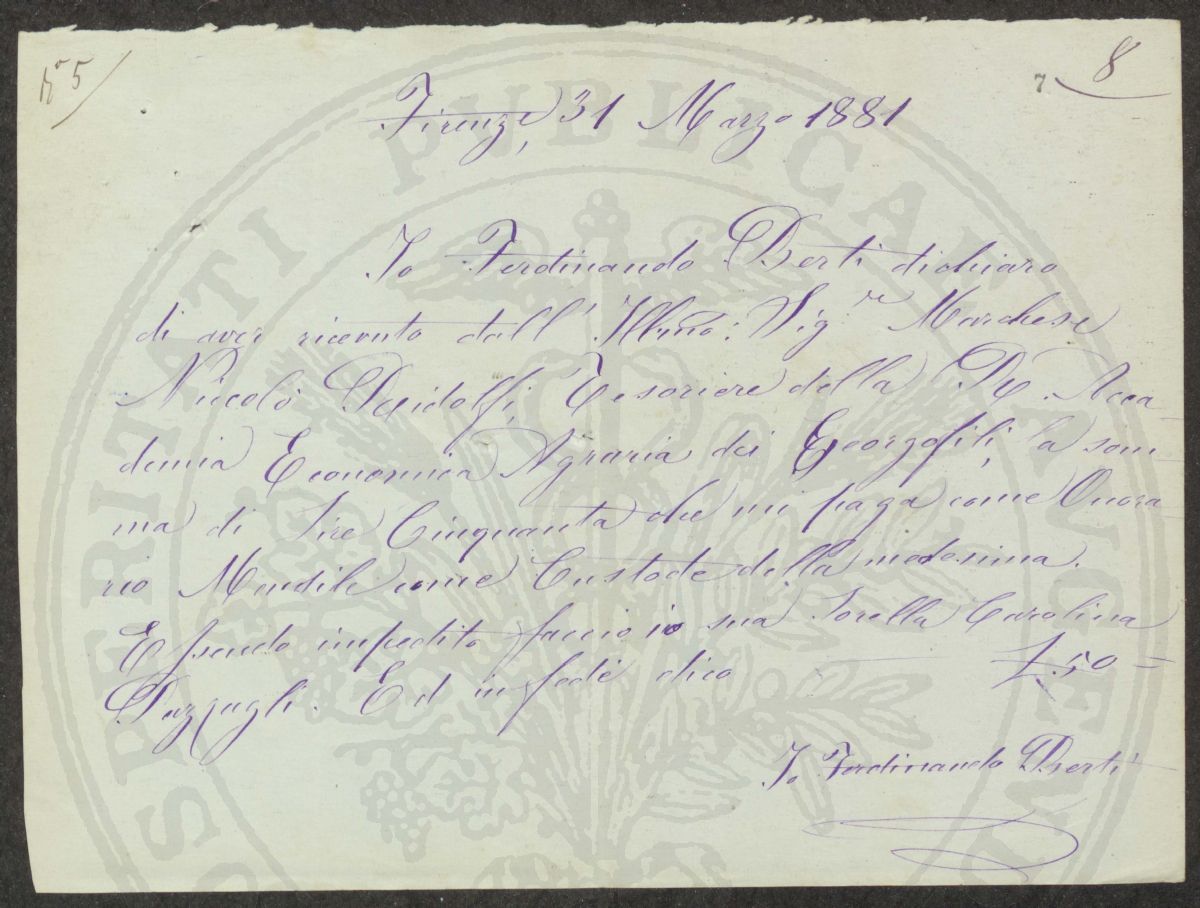 No 5
7. 8
Firenze, 31 Marzo 1881
Io Ferdinando Berti dichiaro
di aver ricevuto dall' Illmo: Sig.re Marchese
Niccolò Ridolfi, Tesoriere della R. Acca-
demia Economica Agraria dei Georgofili, la som-
ma di Lire Cinquanta che mi paga come Onora-
rio Mensile come Custode della medesima.
Essendo impedito faccio io sua Sorella Carolina
Pazzagli. Ed in fede dico L. 50 =
Io Ferdinando Berti
PROSPERITATI PUBLICAE AUGENDAE